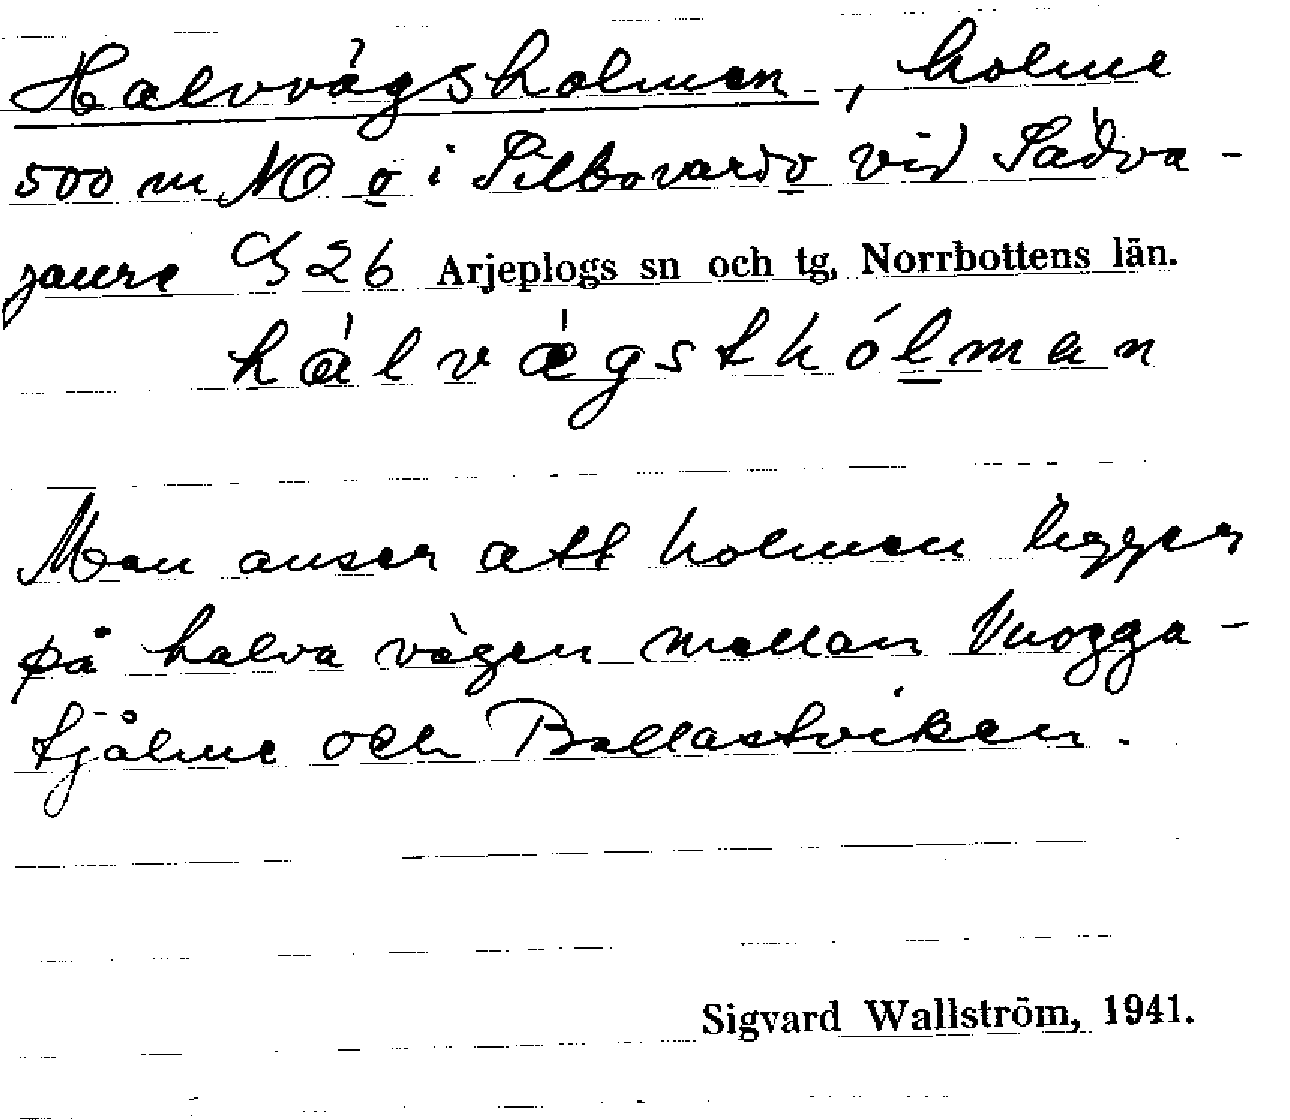 Halvvägsholmen, holme
500 m NO o i Silbovardo vid Sädva-
jaure G 26 Arjeplogs sn och tg, Norrbottens län.
hálvǽgsthólman
Man anser att holmen ligger
på halva vägen mellan Vuogga-
tjålme och Ballastviken.
Sigvard Wallström, 1941.